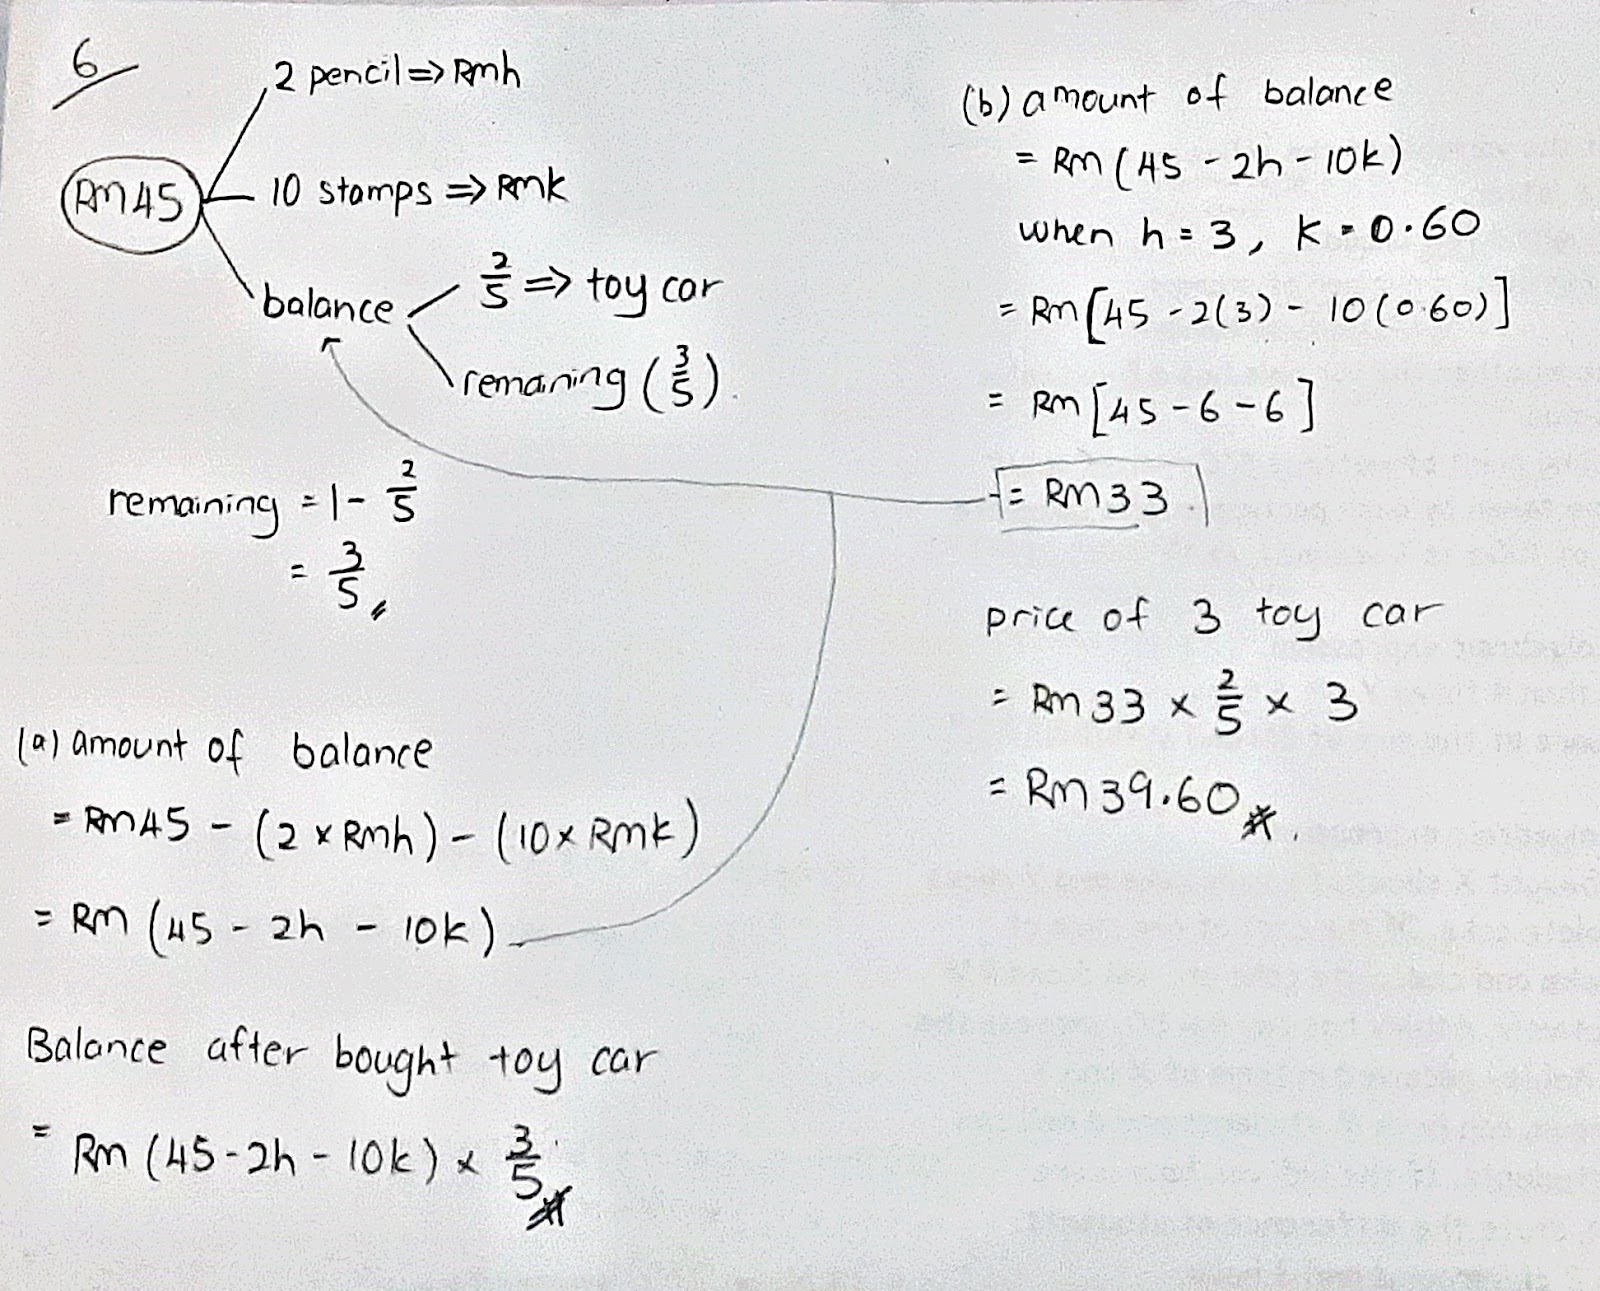 6
2 pencil ⇒ RMh
RM45
10 stamps ⇒ RMk
balance
2/5 ⇒ toy car
remaining (3/5).
remaining = 1 - 2/5
= 3/5
(a) amount of balance
= RM45 - (2 × RMh) - (10 × RMk)
= RM (45 - 2h - 10k)
Balance after bought toy car
= RM (45 - 2h - 10k) × 3/5
(b) amount of balance
= RM (45 - 2h - 10k)
when h = 3, k = 0.60
= RM [45 - 2(3) - 10 (0.60)]
= RM [45 - 6 - 6]
= RM33.
price of 3 toy car
= RM33 × 2/5 × 3
= RM39.60